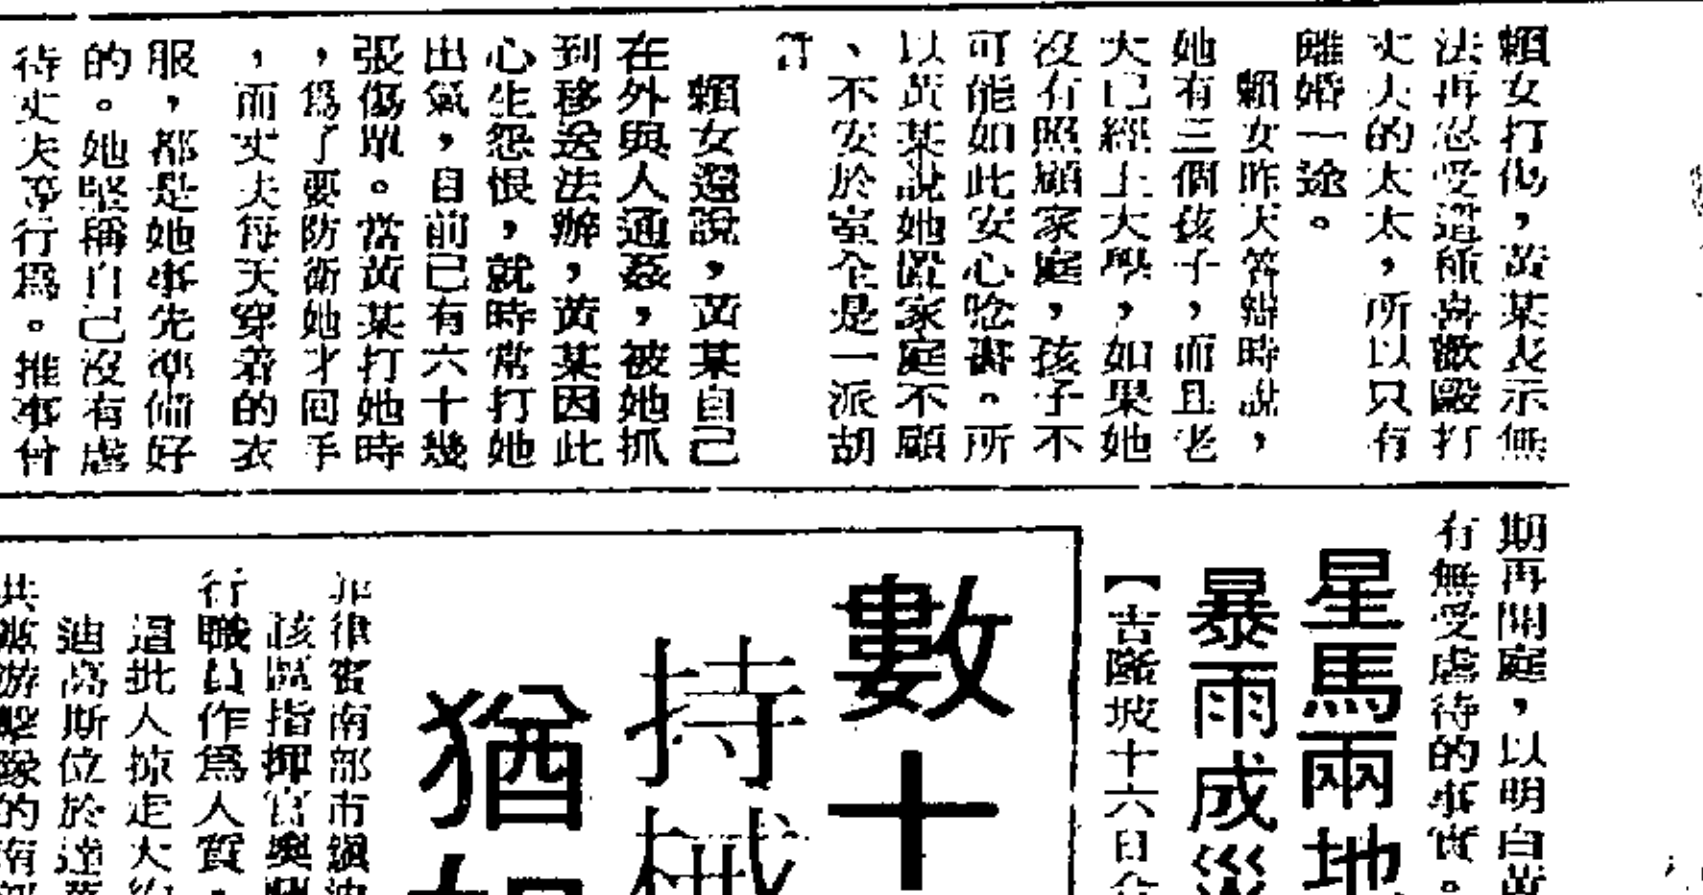 賴女打傷，黃某表示無
法再忍受這種喜歡毆打
丈夫的太太，所以只有
離婚一途。
賴女昨天答辯時說，
她有三個孩子，而且老
大已經上大學，如果她
沒有照顧家庭，孩子不
可能如此安心唸書。所
以黃某說她置家庭不顧
、不安於室全是一派胡
言
賴女還說，黃某自己
在外與人通姦，被她抓
到移送法辦，黃某因此
心生怨恨，就時常打她
出氣，自前已有六十幾
張傷單。當黃某打她時
，為了要防衛她才回手
，而丈夫每天穿着的衣
服，都是她事先準備好
的。她堅稱自己沒有虐
待丈夫等行為。推事曾
期再開庭，以明白黃
有無受虐待的事實。
星馬兩地
暴雨成災
【吉隆坡十六日合
數十
持械
猶如
菲律賓南部市鎮迪
該區指揮官奧
行職員作為人質，
這批人掠走大約
迪高斯位於達
共黨游擊隊的南部